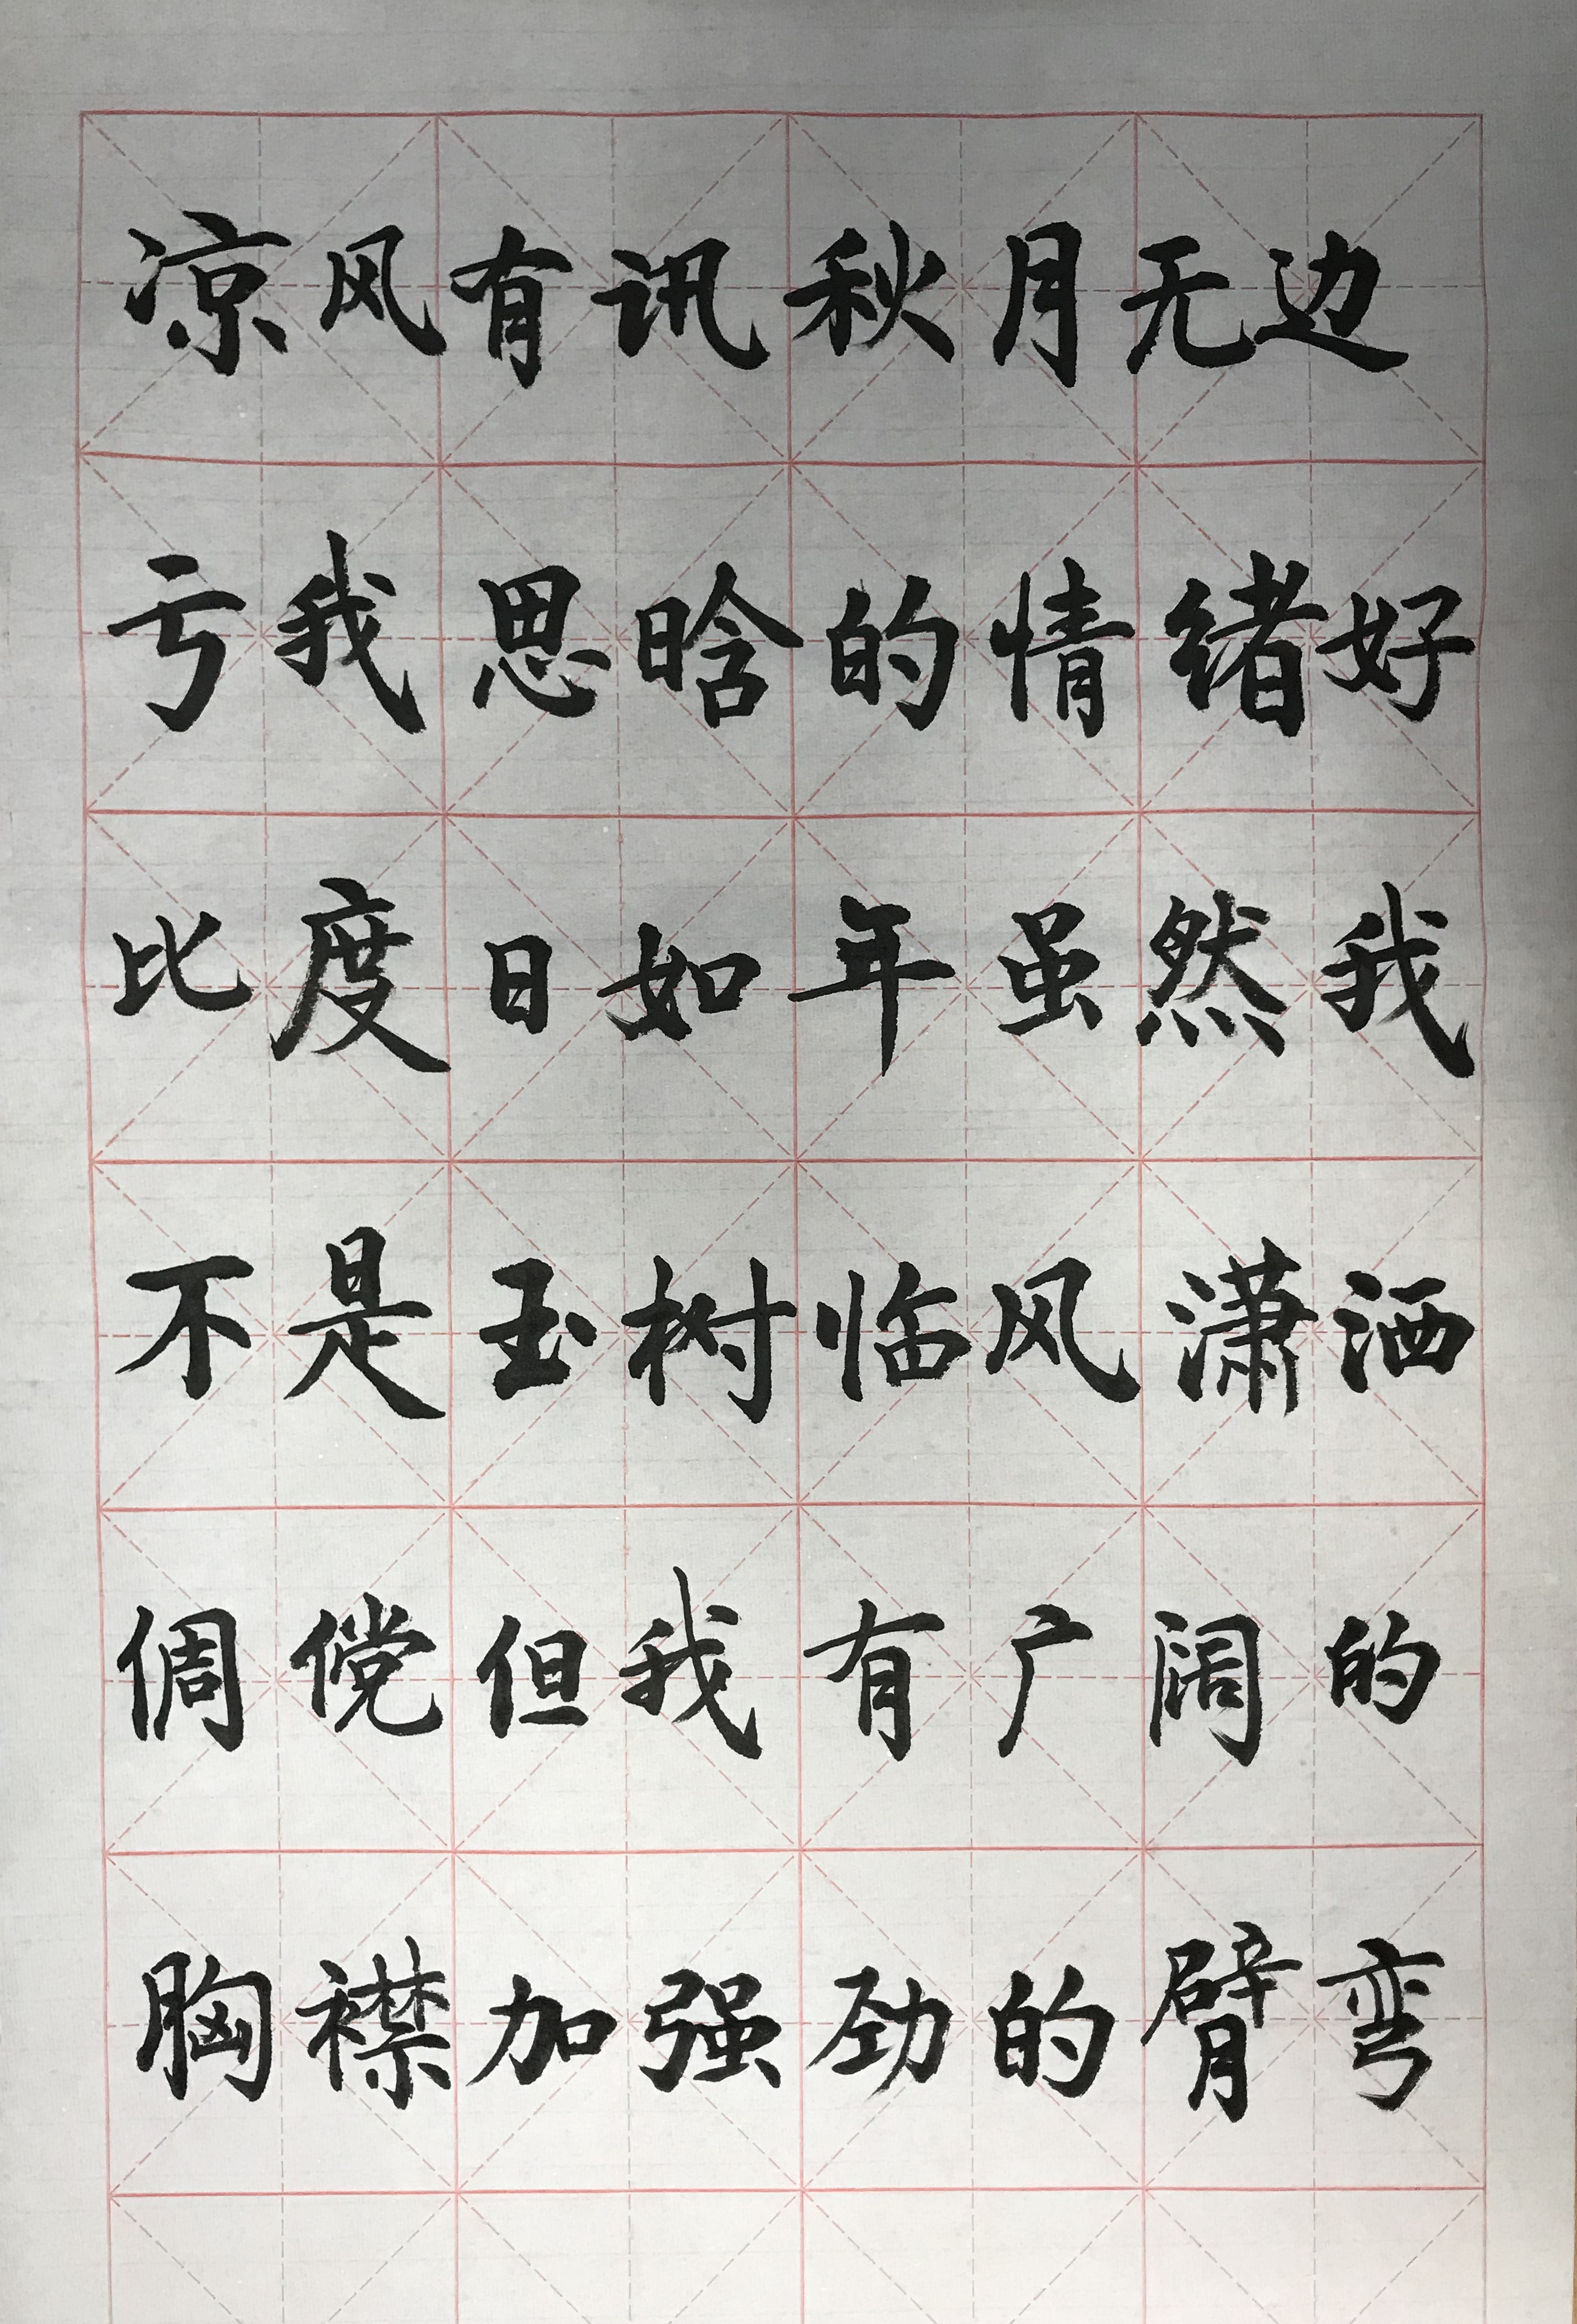 凉风有讯秋月无边
亏我思晗的情绪好
比度日如年虽然我
不是玉树临风潇洒
倜傥但我有广阔的
胸襟加强劲的臂弯